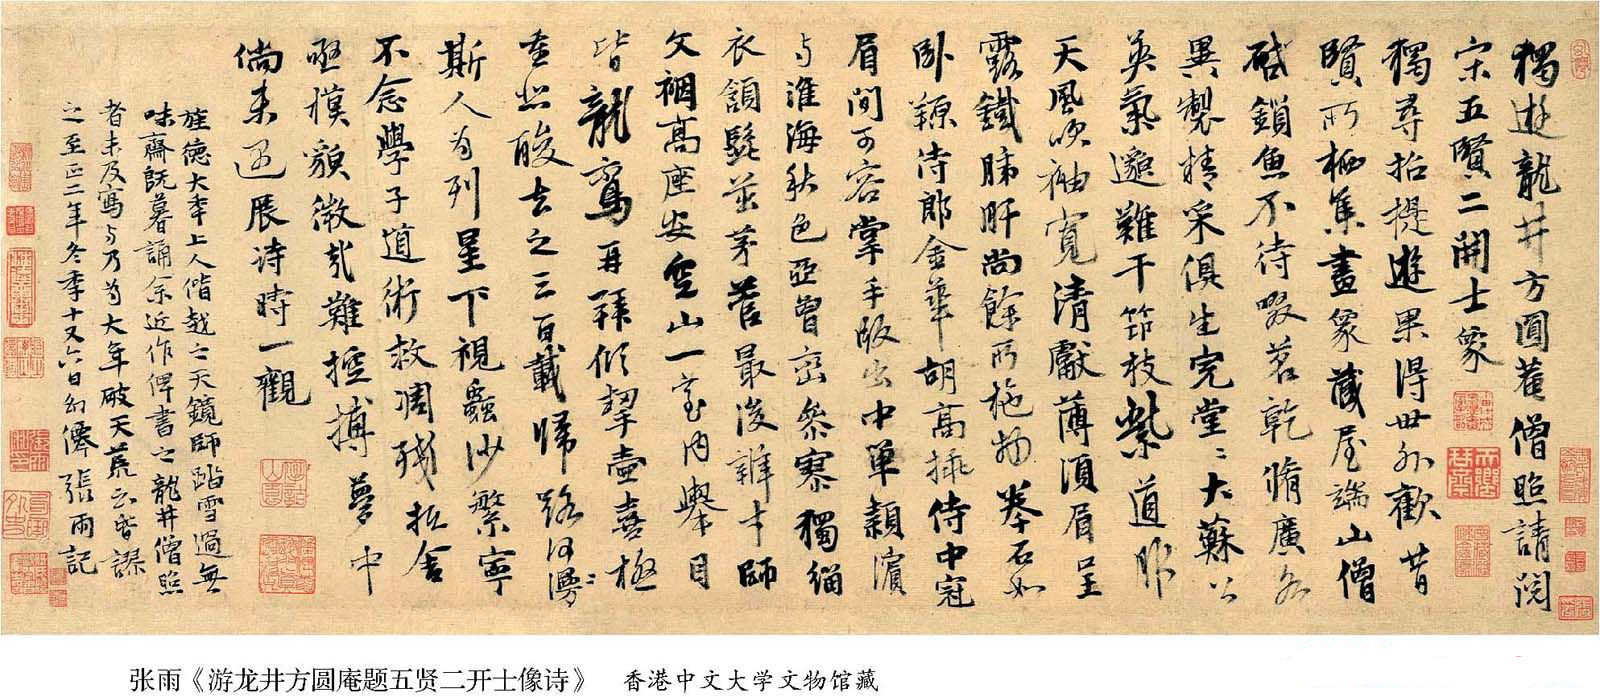 獨遊龍井方圓菴僧照請閱
宋五賢二開士象
獨尋招提遊果得世外歡昔
賢所栖集畫象蔵屋端山僧
啟鎖魚不待啜茗乾脩廣各
異製精采俱生完堂〻大蘇公
英氣邈難干筇枝紫道服
天風吹袖寬清獻薄須眉呈
露鐵肺肝尚餘所施物拳石如
卧侍郎金華胡高標侍中冠
眉間可容掌手版出中單潁濱
与淮海秋色亞曾巒參寥獨緇
衣頷髭茁茅菅最後辯才師
文裀高座安空山一室内舉目
皆龍鸞再拜傾挈壺喜極
悲酸去之三百載歸路何漫〻
斯人为列星下視蟲沙繁寧
不念學子道術救凋殘拓舍
亟模貌微哉難摶夢中
倘来過展诗時一觀
旌德大年上人偕越之天鏡師踏雪過無
味齋既暮誦余近作俾書之龍井僧照
者未及寫与乃为大年破天荒云皆謬
之至正二年冬季十又六日幻僊張雨記
张雨《游龙井方圆庵题五贤二开士像诗》 香港中文大学文物馆藏